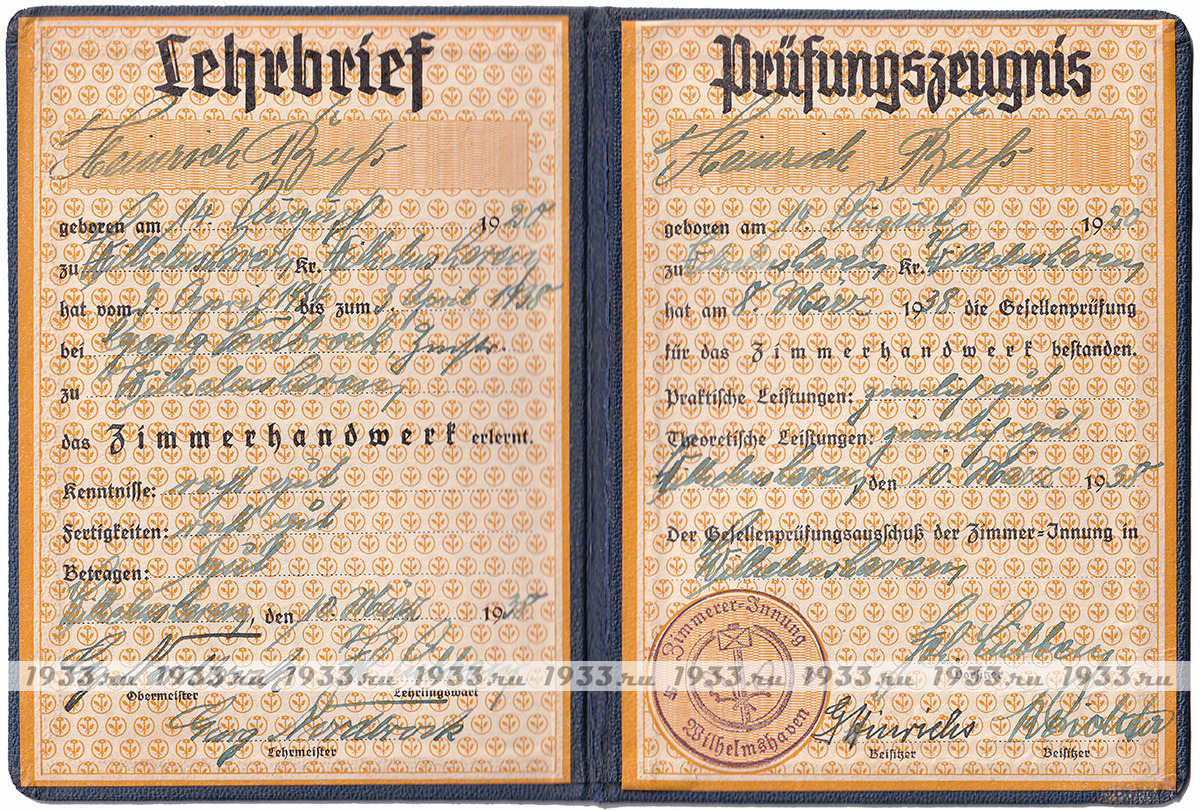 Lehrbrief
Heinrich Buß
geboren am 14. August 1920
zu Wilhelmshaven Kr. Wilhelmshaven
hat vom 3. April bis zum 3. April 1938
bei Nordbrock, Zmstr.
zu Wilhelmshaven
das Zimmerhandwerk erlernt.
Kenntnisse: recht gut
Fertigkeiten: recht gut
Betragen: gut
Wilhelmshaven, den 10. März 1938
Obermeister Lehrlingswart
Georg Nordbrock
Lehrmeister
Prüfungszeugnis
Heinrich Buß
geboren am August 1920
zu Wilhelmshaven Kr. Wilhelmshaven
hat am 8. März 1938 die Gesellenprüfung
für das Zimmerhandwerk bestanden.
Praktische Leistungen: ziemlich gut
Theoretische Leistungen: ziemlich gut
Wilhelmshaven, den 10. März 1938
Der Gesellenprüfungsausschuß der Zimmer-Innung in
Wilhelmshaven
Zimmerer-Innung
Wilhelmshaven
Lübben
Vorsitzer
G Hinrichs
Beisitzer Beisitzer
1933.ru 1933.ru 1933.ru 1933.ru 1933.ru 1933.ru 1933.ru 1933.ru 1933.ru